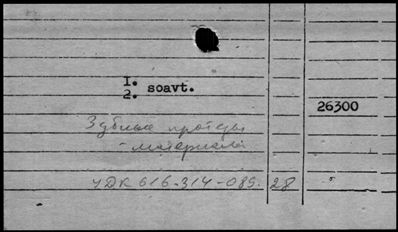 1.
2. soavt.
26300
Зубные протезы
- материалы
УДК 616-314-089.28